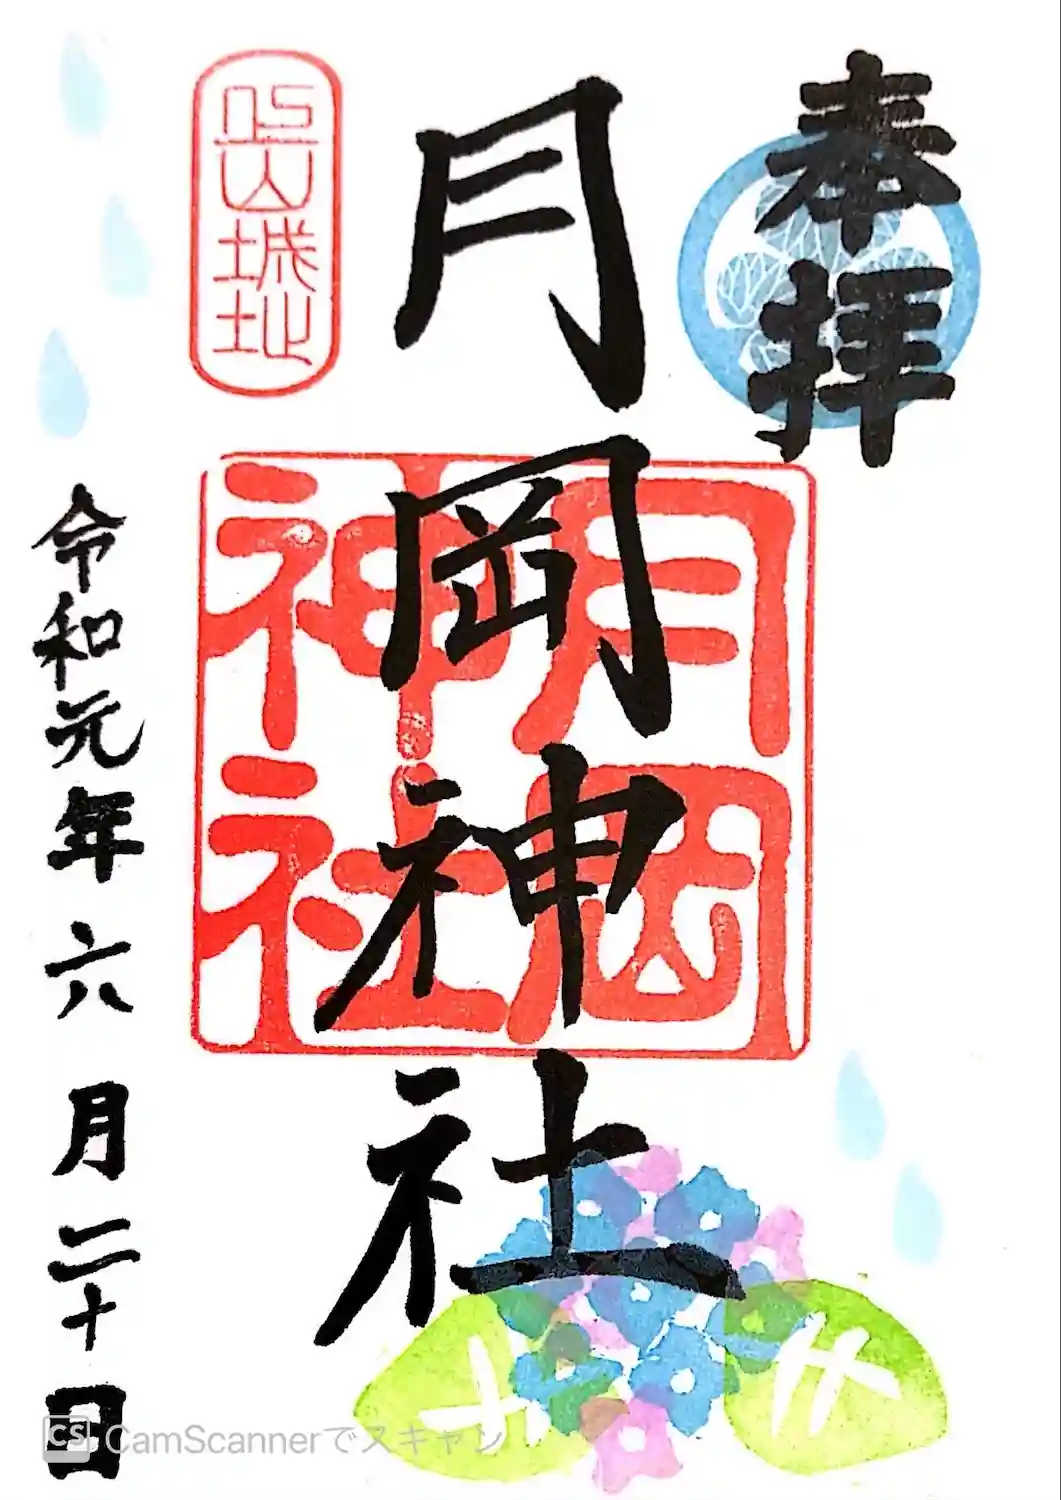 奉拝
月岡神社
月岡
神社
城址
令和元年 六 月 二十 日
CS CamScannerでスキャン